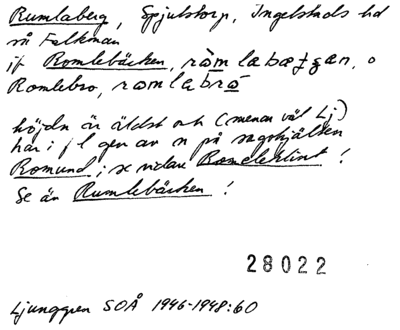 Rumlaberg, Spjutstorp, Ingelstads hd
så Falkman
jf Romlebäcken, ròmlabäƫƫan, o
Romlebro, romlabró
höjdn är äldst och (menar väl Lj)
har i f l gen av n på sagohjälten
Romund; se vidare Romeleklint!
Se än Rumlebäcken!
28022
Ljunggren SOÅ 1946-1948:60